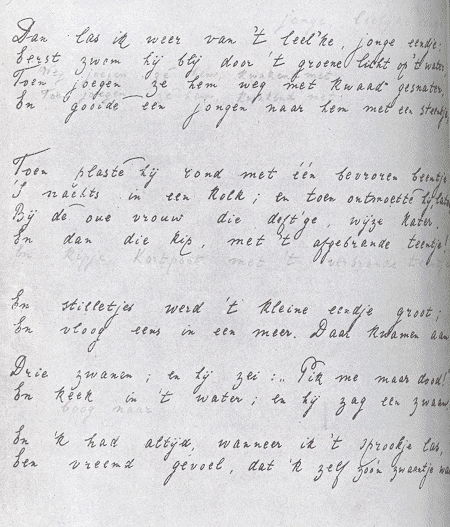 Dan las ik weer van 't leel'ke, jonge eendje:
Eerst zwem hij blij door 't groene licht op 't water,
Toen joegen ze hem weg met kwaad gesnater,
En gooide een jongen naar hem met een steentje
Toen plaste hij rond met één bevroren beentje
's nachts in een kolk; en toen ontmoette hij later
Bij de oue vrouw die deft'ge, wijze kater,
En dan die kip, met 't afgebrande teentje!
En stilletjes werd 't kleine eendje groot;
En vloog eens in een meer. Daar kwamen aan
Drie zwanen; en hij zei: „Pik me maar dood!"
En keek in 't water; en hij zag een zwaan.
boog naar
En 'k had altijd, wanneer ik 't sprookje las,
Een vreemd gevoel, dat 'k zelf zóó'n zwaantje was